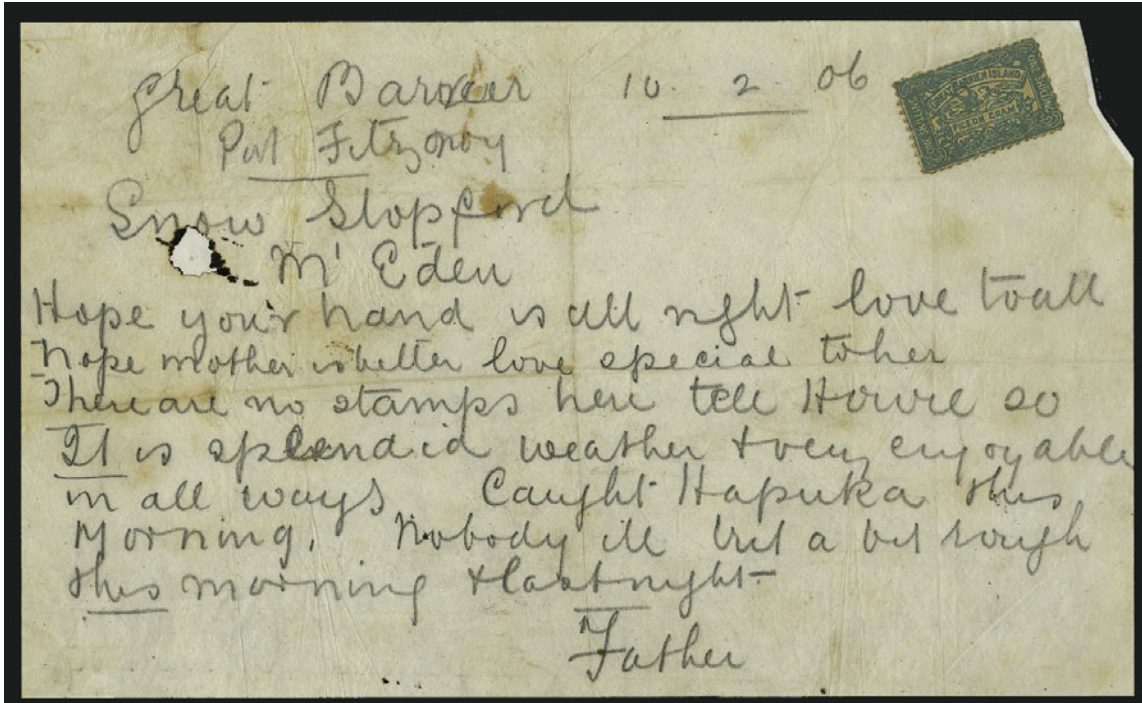 Great Barrier 10. 2. 06
Port Fitzroy
Snow Stopford
Mt Eden
Hope your hand is all right love to all
Hope mother is better love special to her
There are no stamps here tell Howie so
It is splendid weather & very enjoyable
in all ways Caught Hapuka this
Morning. Nobody ill but a bit rough
this morning & last night
Father
GREAT BARRIER ISLAND
PIGEON GRAM
ONE SHILLING